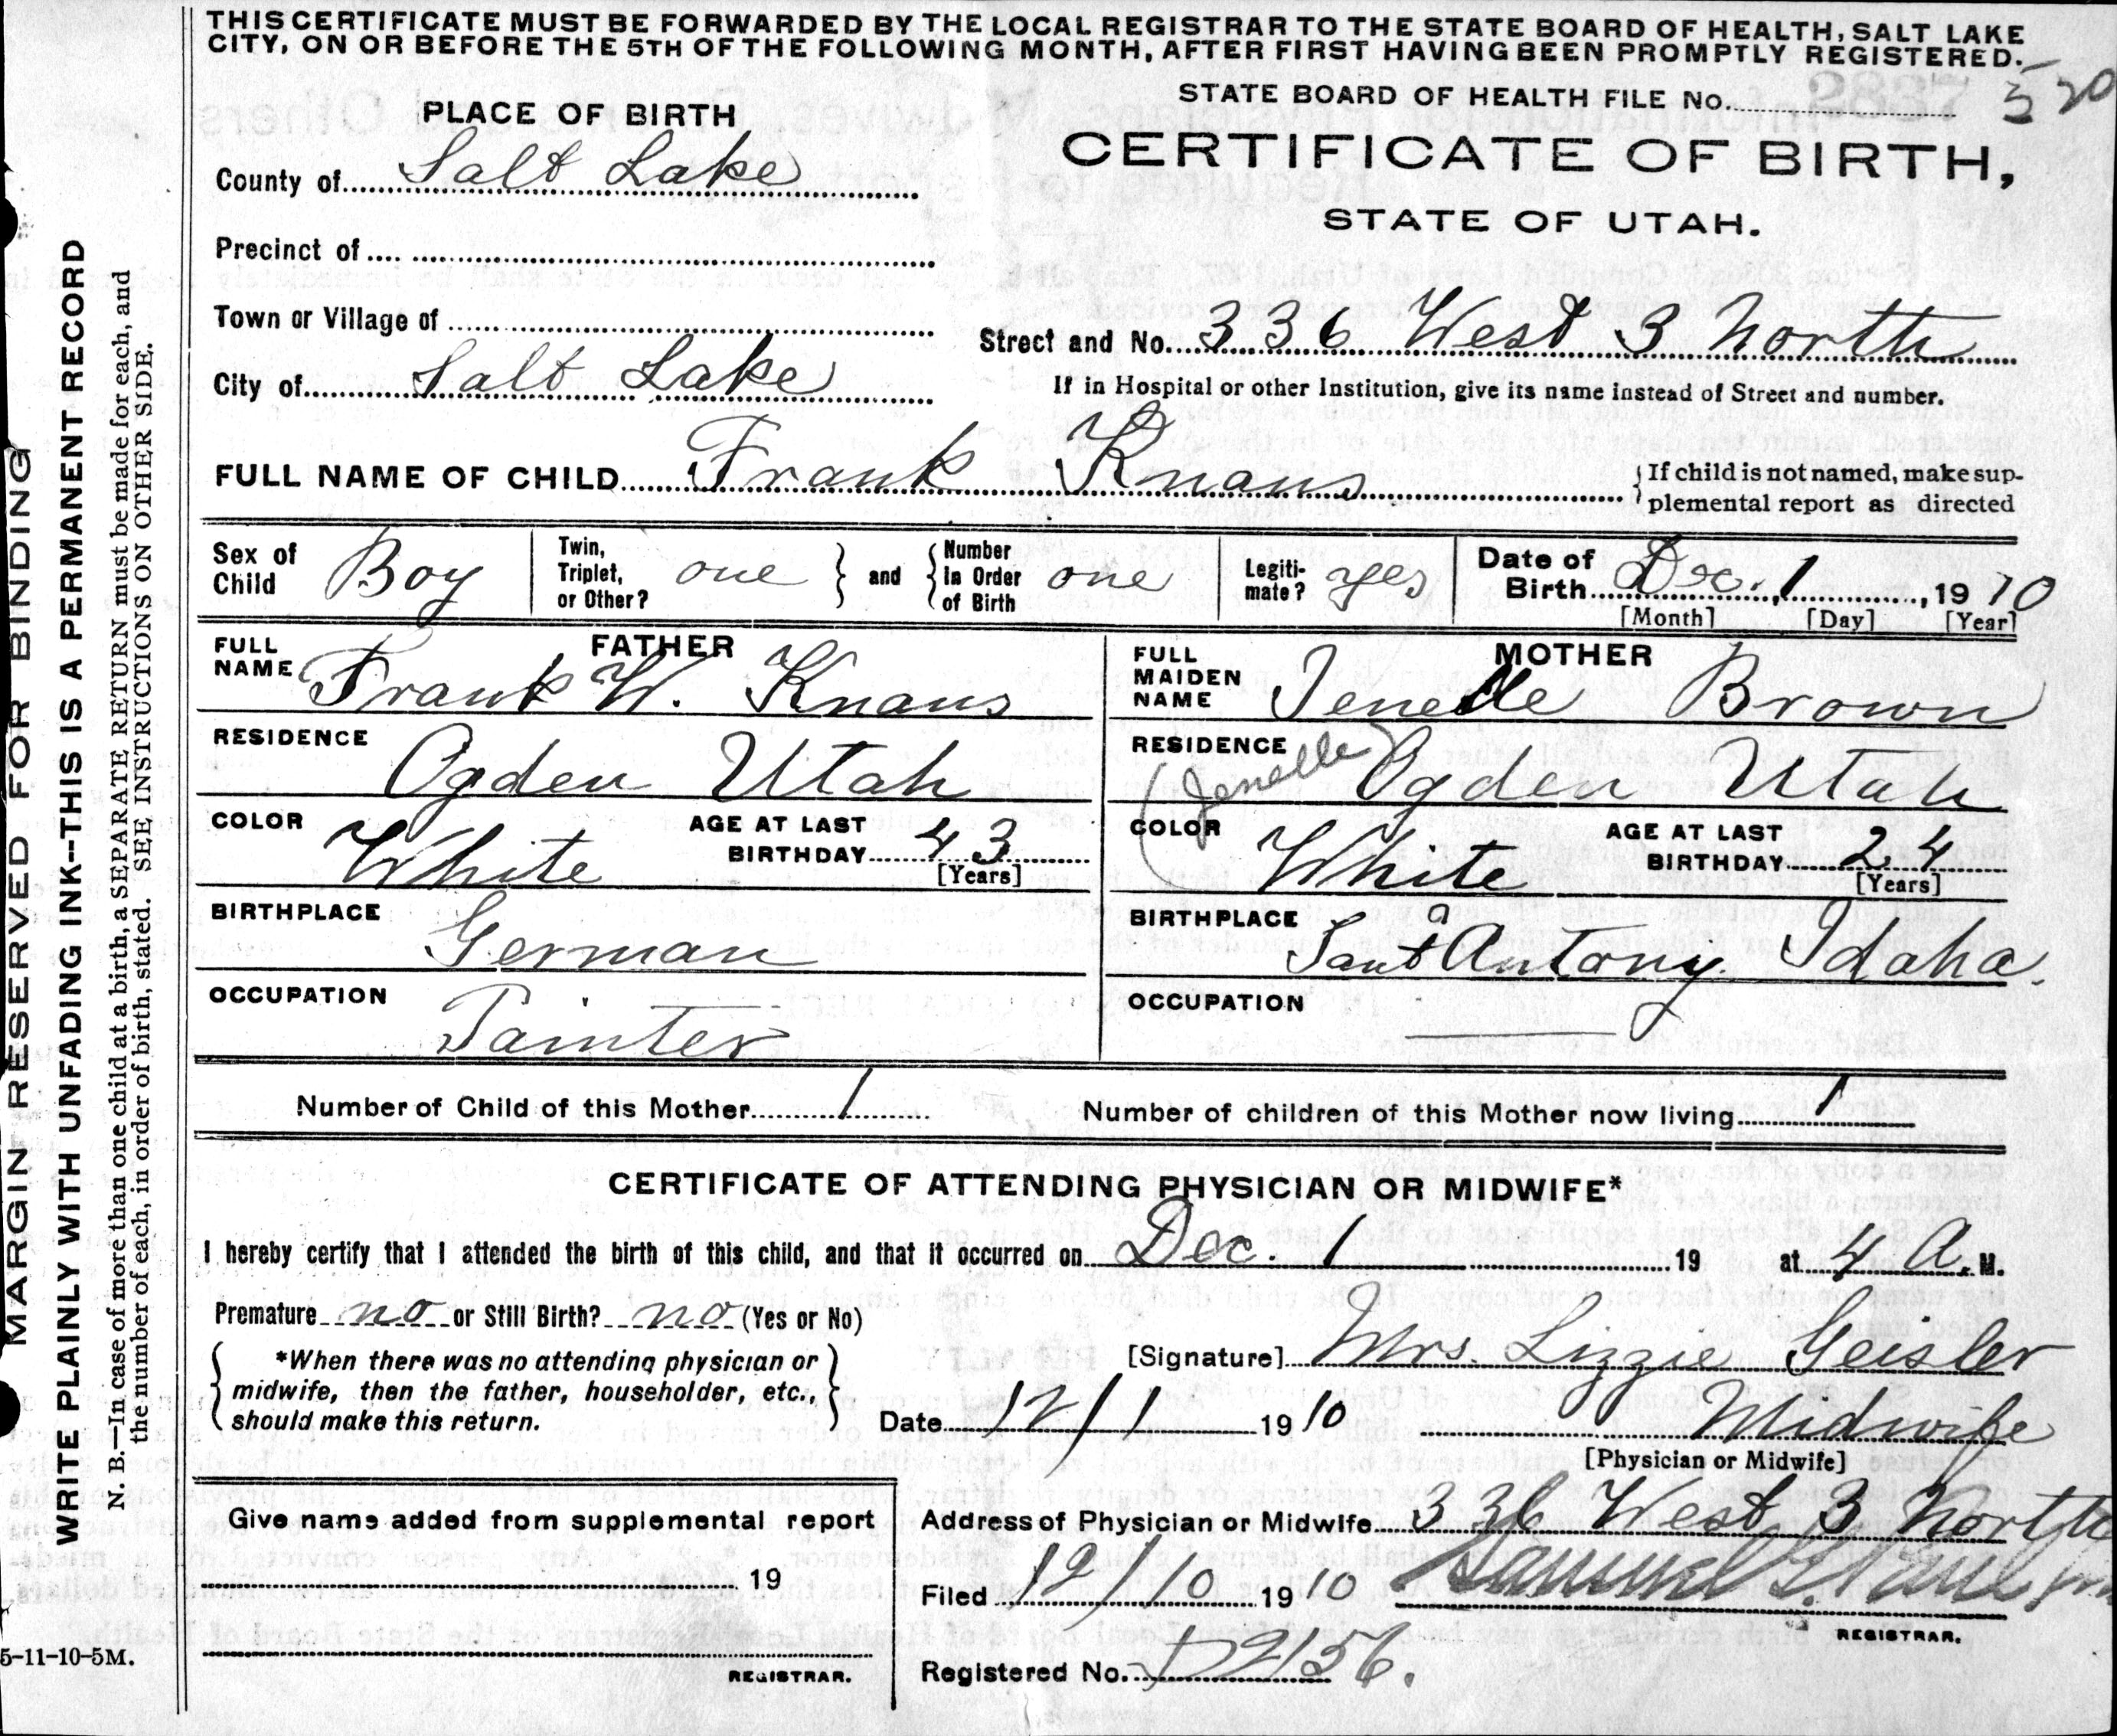 THIS CERTIFICATE MUST BE FORWARDED BY THE LOCAL REGISTRAR TO THE STATE BOARD OF HEALTH, SALT LAKE
CITY, ON OR BEFORE THE 5TH OF THE FOLLOWING MONTH, AFTER FIRST HAVING BEEN PROMPTLY REGISTERED.
STATE BOARD OF HEALTH FILE No. 520
PLACE OF BIRTH
CERTIFICATE OF BIRTH,
STATE OF UTAH.
County of Salt Lake
Precinct of
Town or Village of
Street and No. 336 West 3 North
City of Salt Lake
If in Hospital or other Institution, give its name instead of Street and number.
FULL NAME OF CHILD Frank Knaus
{ If child is not named, make sup-
plemental report as directed
Sex of Child Boy
Twin, Triplet, or Other? one } and { Number In Order of Birth one
Legiti-mate? yes
Date of Birth Dec. 1, 1910
[Month] [Day] [Year]
FATHER
FULL NAME Frank W. Knaus
RESIDENCE Ogden Utah
COLOR White
AGE AT LAST BIRTHDAY 43
[Years]
BIRTHPLACE German
OCCUPATION Painter
MOTHER
FULL MAIDEN NAME Jenelle Brown
(Jenelle)
RESIDENCE Ogden Utah
COLOR White
AGE AT LAST BIRTHDAY 24
[Years]
BIRTHPLACE Sant Antony Idaho.
OCCUPATION
Number of Child of this Mother 1
Number of children of this Mother now living 1
CERTIFICATE OF ATTENDING PHYSICIAN OR MIDWIFE*
I hereby certify that I attended the birth of this child, and that it occurred on Dec. 1 19 at 4 A. M.
Premature no or Still Birth? no (Yes or No)
{ *When there was no attending physician or
midwife, then the father, householder, etc.,
should make this return. }
[Signature] Mrs. Lizzie Geisler
Date 12/1 1910
Midwife
[Physician or Midwife]
Give name added from supplemental report
19
REGISTRAR.
Address of Physician or Midwife 336 West 3 North
Filed 12/10 1910
REGISTRAR.
Registered No.
MARGIN RESERVED FOR BINDING
WRITE PLAINLY WITH UNFADING INK--THIS IS A PERMANENT RECORD
N. B.—In case of more than one child at a birth, a SEPARATE RETURN must be made for each, and
the number of each, in order of birth, stated. SEE INSTRUCTIONS ON OTHER SIDE.
5-11-10-5M.